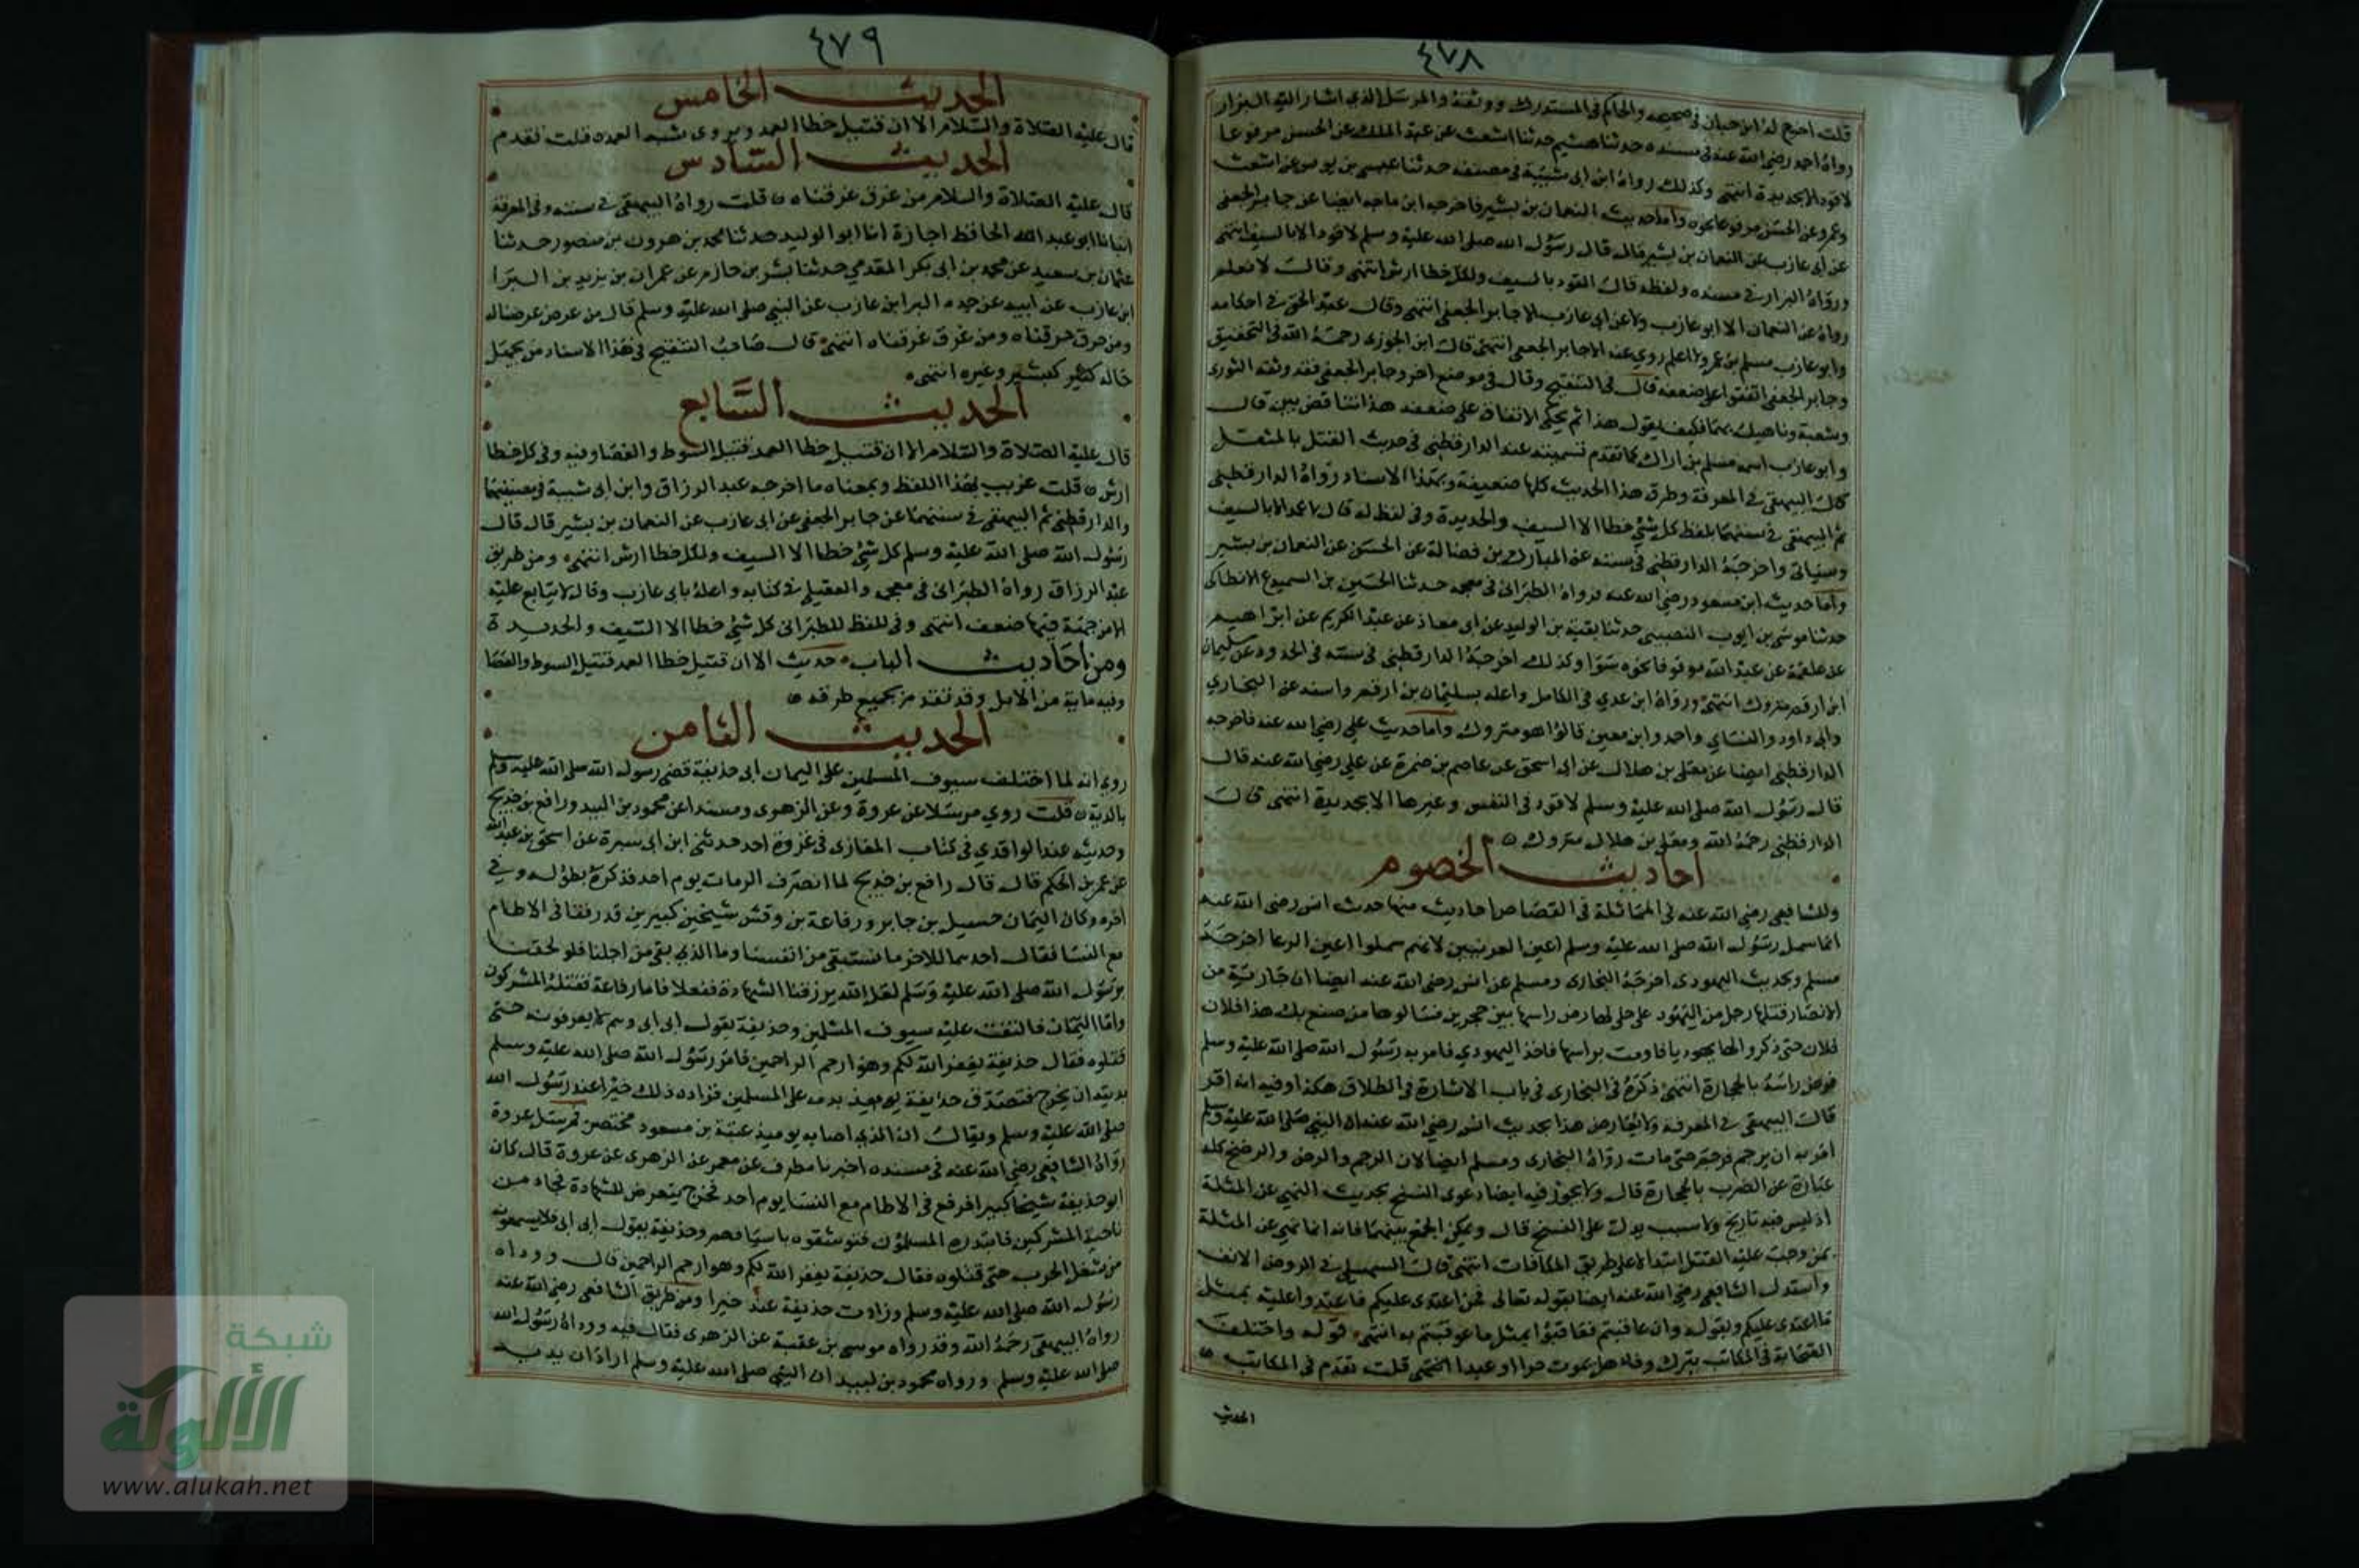 ٤٧٨
قلت اخرج له ابن حبان في صحيحه والحاكم في المستدرك ووثقه والمرسل الذي اشار اليه البزار
رواه احمد رضي الله عنه في مسنده حدثنا هشيم حدثنا اشعث عن عبد الملك عن الحسن مرفوعا
لا قود الا بحديدة انتهى وكذلك رواه ابن ابي شيبة في مصنفه حدثنا عيسى بن يونس عن اشعث
وعمرو عن الحسن مرفوعا نحوه واما حديث النعمان بن بشير فاخرجه ابن ماجه ايضا عن جابر الجعفي
عن ابي عازب عن النعمان بن بشير قال قال رسول الله صلى الله عليه وسلم لا قود الا بالسيف انتهى
ورواه البزار في مسنده ولفظه قال القود بالسيف ولكل خطا ارش انتهى وقال لا نعلم
رواه عن النعمان الا ابو عازب ولا عن ابي عازب الا جابر الجعفي انتهى وقال عبد الحق في احكامه
وابو عازب مسلم بن عمرو لا اعلم روي عنه الا جابر الجعفي انتهى قال ابن الجوزي رحمه الله في التحقيق
وجابر الجعفي اتفقوا على ضعفه قال في التنقيح وقال في موضع اخر وجابر الجعفي فقد وثقه الثوري
وشعبة وناهيك بهما فكيف يقول هذا ثم يحكي الاتفاق على ضعفه هذا تناقض بين قال
وابو عازب اسمه مسلم بن اراك كما تقدم تسميته عند الدارقطني في حديث القتل بالمثقل
قال البيهقي في المعرفة وطرق هذا الحديث كلها ضعيفة وبهذا الاسناد رواه الدارقطني
ثم البيهقي في سننهما بلفظ كل شي خطا الا السيف والحديدة وفي لفظ له قال لا عمد الا بالسيف
وسياتي واخرجه الدارقطني في سننه عن المبارك بن فضالة عن الحسن عن النعمان بن بشير
واما حديث ابن مسعود رضي الله عنه فرواه الطبراني في معجمه حدثنا الحسين بن السميدع الانطاكي
حدثنا موسى بن ايوب النصيبي حدثنا بقية بن الوليد عن ابي معاذ عن عبد الكريم عن ابراهيم
عن علقمة عن عبد الله مرفوعا نحوه سوا وكذلك اخرجه الدارقطني في سننه في الحدود عن سليمان
ابن ارقم متروك انتهى ورواه ابن عدي في الكامل واعله بسليمان بن ارقم واسند عن البخاري
وابي داود والنساي واحمد وابن معين قالوا هو متروك واما حديث علي رضي الله عنه فاخرجه
الدارقطني ايضا عن معلى بن هلال عن ابي اسحق عن عاصم بن ضمرة عن علي رضي الله عنه قال
قال رسول الله صلى الله عليه وسلم لا قود في النفس وغيرها الا بحديدة انتهى قال
الدارقطني رحمه الله ومعلى بن هلال متروك
احاديث الخصوم
وللشافعي رضي الله عنه في المماثلة في القصاص احاديث منها حديث انس رضي الله عنه
انما سمل رسول الله صلى الله عليه وسلم اعين العرنيين لانهم سملوا اعين الرعا اخرجه
مسلم وحديث اليهودي اخرجه البخاري ومسلم عن انس رضي الله عنه ايضا ان جارية من
الانصار قتلها رجل من اليهود على حلي لها رض راسها بين حجرين فسالوها من صنع بك هذا فلان
فلان حتى ذكروا لها يهوديا فاومت براسها فاخذ اليهودي فامر به رسول الله صلى الله عليه وسلم
فرض راسه بالحجارة انتهى ذكره في البخاري في باب الاشارة في الطلاق هكذا وفيه انه اقر
قال البيهقي في المعرفة ولا يعارض هذا بحديث انس رضي الله عنه ان النبي صلى الله عليه وسلم
امر به ان يرجم فرجم حتى مات رواه البخاري ومسلم ايضا لان الرجم والرض والرضخ كله
عبارة عن الضرب بالحجارة قال ولا يجوز فيه ايضا دعوى النسخ بحديث النهي عن المثلة
اذ ليس فيه تاريخ ولا سبب يدل على النسخ قال ويمكن الجمع بينهما فانه انما نهي عن المثلة
بمن وجب عليه القتل ابتدا لا على طريق المكافات انتهى قال السهيلي في الروض الانف
واستدل الشافعي رضي الله عنه ايضا بقوله تعالى فمن اعتدى عليكم فاعتدوا عليه بمثل
ما اعتدى عليكم وبقوله وان عاقبتم فعاقبوا بمثل ما عوقبتم به انتهى قوله واختلف
الصحابة في المكاتب يترك وفاء هل يموت حرا او عبدا انتهى قلت تقدم في المكاتب
الحديث
٤٧٩
الحديث الخامس
قال عليه الصلاة والسلام الا ان قتيل خطا العمد ويروى شبه العمد قلت تقدم
الحديث السادس
قال عليه الصلاة والسلام من غرق غرقناه قلت رواه البيهقي في سننه وفي المعرفة
انبانا ابو عبد الله الحافظ اجازة انا ابو الوليد حدثنا محمد بن هرون بن منصور حدثنا
عثمان بن سعيد عن محمد بن ابي بكر المقدمي حدثنا بشر بن حازم عن عمران بن يزيد بن البرا
ابن عازب عن ابيه عن جده البرا بن عازب عن النبي صلى الله عليه وسلم قال من عرض عرضنا له
ومن حرق حرقناه ومن غرق غرقناه انتهى قال صاحب التنقيح في هذا الاسناد من يجهل
حاله كبشر وغيره انتهى
الحديث السابع
قال عليه الصلاة والسلام الا ان قتيل خطا العمد قتيل السوط والعصا وفيه وفي كل خطا
ارش قلت غريب بهذا اللفظ وبمعناه ما اخرجه عبد الرزاق وابن ابي شيبة في مصنفيهما
والدارقطني ثم البيهقي في سننهما عن جابر الجعفي عن ابي عازب عن النعمان بن بشير قال قال
رسول الله صلى الله عليه وسلم كل شي خطا الا السيف ولكل خطا ارش انتهى ومن طريق
عبد الرزاق رواه الطبراني في معجمه والعقيلي في كتابه واعله بابي عازب وقال لا يتابع عليه
الا من جهة فيها ضعف انتهى وفي لفظ للطبراني كل شي خطا الا السيف والحديدة
ومن احاديث الباب حديث الا ان قتيل خطا العمد قتيل السوط والعصا
وفيه ماية من الابل وقد تقدم بجميع طرقه
الحديث الثامن
روي انه لما اختلف سيوف المسلمين على اليمان ابي حذيفة قضى رسول الله صلى الله عليه وسلم
بالدية قلت روي مرسلا عن عروة وعن الزهري ومسندا عن محمود بن لبيد ورافع بن خديج
وحديثه عند الواقدي في كتاب المغازي في غزوة احد حدثني ابن ابي سبرة عن اسحق بن عبد الله
عن عمر بن الحكم قال قال رافع بن خديج لما انصرف الرمات يوم احد فذكره بطوله وفي
اخره وكان اليمان حسيل بن جابر ورفاعة بن وقش شيخين كبيرين قد رفعا في الاطام
مع النسا فقال احدهما للاخر ما نستبقي من انفسنا وما الذي بقي من اجلنا فلو لحقنا
برسول الله صلى الله عليه وسلم لعل الله يرزقنا الشهادة ففعلا فاما رفاعة فقتله المشركون
واما اليمان فالتفت عليه سيوف المسلمين وحذيفة يقول ابي ابي وهم لا يعرفونه حتى
قتلوه فقال حذيفة يغفر الله لكم وهو ارحم الراحمين فامر رسول الله صلى الله عليه وسلم
بديته ان يخرج فتصدق حذيفة يوميذ بدمه على المسلمين فزاده ذلك خيرا عند رسول الله
صلى الله عليه وسلم ويقال ان الذي اصابه يوميذ عتبة بن مسعود مختصر فمرسل عروة
رواه الشافعي رضي الله عنه في مسنده اخبرنا مطرف عن معمر عن الزهري عن عروة قال كان
ابو حذيفة شيخا كبيرا فرفع في الاطام مع النسا يوم احد فخرج يتعرض للشهادة فجاء من
ناحية المشركين فابتدره المسلمون فتوشقوه باسيافهم وحذيفة يقول ابي ابي فلا يسمعونه
من شغل الحرب حتى قتلوه فقال حذيفة يغفر الله لكم وهو ارحم الراحمين قال ووداه
رسول الله صلى الله عليه وسلم وزادت حذيفة عنده خيرا ومن طريق الشافعي رضي الله عنه
رواه البيهقي رحمه الله وقد رواه موسى بن عقبة عن الزهري فقال فيه ووداه رسول الله
صلى الله عليه وسلم ورواه محمود بن لبيد ان النبي صلى الله عليه وسلم اراد ان يديه
شبكة
الألوكة
www.alukah.net